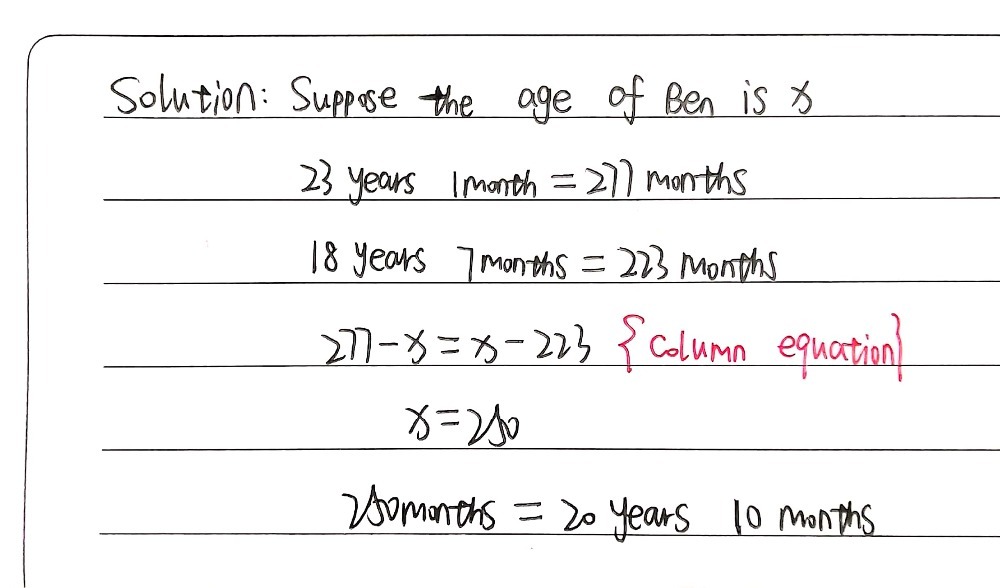 Solution: Suppose the age of Ben is x
23 years 1 month = 277 months
18 years 7 months = 223 months
277-x=x-223 {Column equation}
x=250
250months = 20 years 10 months